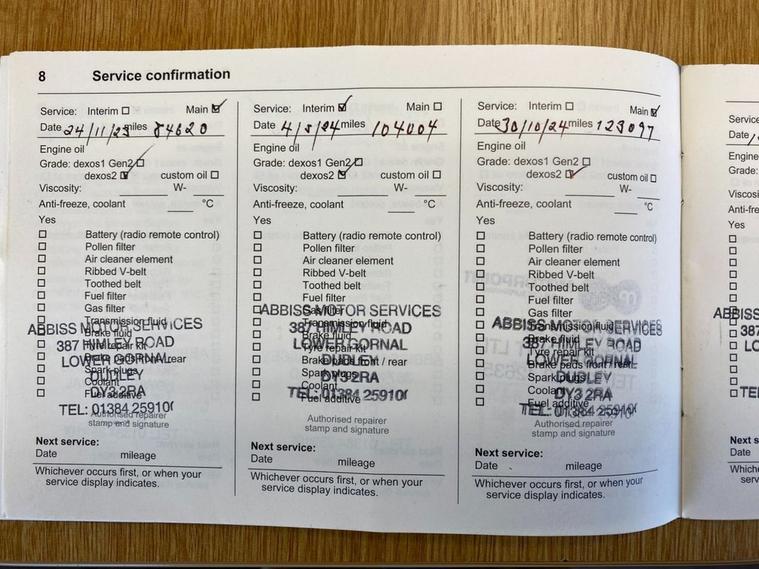 8 Service confirmation
Service: Interim ☐ Main ☑
Date 24/11/23 miles 84620
Engine oil
Grade: dexos1 Gen2 ☐
dexos2 ☑ custom oil ☐
Viscosity: W-
Anti-freeze, coolant °C
Yes
☐ Battery (radio remote control)
☐ Pollen filter
☐ Air cleaner element
☐ Ribbed V-belt
☐ Toothed belt
☐ Fuel filter
☐ Gas filter
☐ Transmission fluid
ABBISS MOTOR SERVICES
☐ Brake fluid
387 HIMLEY ROAD
☐ Tyre repair kit
LOWER GORNAL
☐ Brake pads front / rear
DUDLEY
☐ Spark plugs
☐ Coolant
DY3 2RA
☐ Fuel additive
TEL: 01384 25910
Authorised repairer
stamp and signature
Next service:
Date mileage
Whichever occurs first, or when your
service display indicates.
Service: Interim ☑ Main ☐
Date 4/5/24 miles 104004
Engine oil
Grade: dexos1 Gen2 ☐
dexos2 ☑ custom oil ☐
Viscosity: W-
Anti-freeze, coolant °C
Yes
☐ Battery (radio remote control)
☐ Pollen filter
☐ Air cleaner element
☐ Ribbed V-belt
☐ Toothed belt
☐ Fuel filter
☐ Gas filter
ABBISS MOTOR SERVICES
☐ Transmission fluid
387 HIMLEY ROAD
☐ Brake fluid
LOWER GORNAL
☐ Tyre repair kit
☐ Brake pads front / rear
DUDLEY
☐ Spark plugs
DY3 2RA
☐ Coolant
TEL: 01384 25910
☐ Fuel additive
Authorised repairer
stamp and signature
Next service:
Date mileage
Whichever occurs first, or when your
service display indicates.
Service: Interim ☐ Main ☑
Date 30/10/24 miles 123097
Engine oil
Grade: dexos1 Gen2 ☐
dexos2 ☑ custom oil ☐
Viscosity: W-
Anti-freeze, coolant °C
Yes
☐ Battery (radio remote control)
☐ Pollen filter
☐ Air cleaner element
☐ Ribbed V-belt
☐ Toothed belt
☐ Fuel filter
☐ Gas filter
ABBISS MOTOR SERVICES
☐ Transmission fluid
☐ Brake fluid
387 HIMLEY ROAD
☐ Tyre repair kit
LOWER GORNAL
☐ Brake pads front / rear
DUDLEY
☐ Spark plugs
☐ Coolant
DY3 2RA
☐ Fuel additive
TEL: 01384 25910
Authorised repairer
stamp and signature
Next service:
Date mileage
Whichever occurs first, or when your
service display indicates.
Service
Date
Engine
Grade:
Viscosi
Anti-fre
Yes
ABBISS
387
LO
TE
Next s
Date
Which
serv